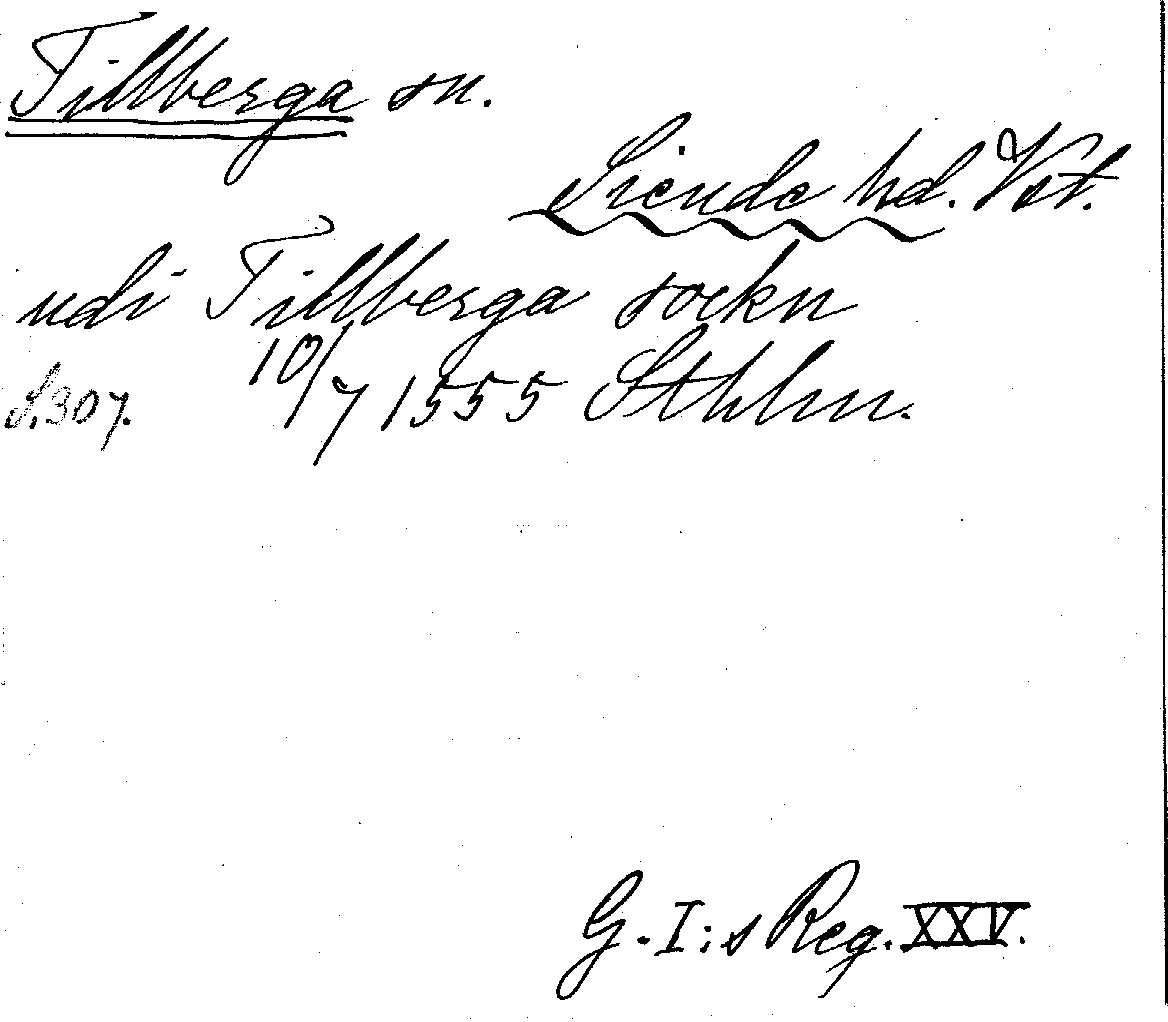 Tillberga sn.
Siende hd. Vst.
udi Tillberga sockn
S.307. 10/7 1555 Sthlm.
G.I:s Reg. XXV.